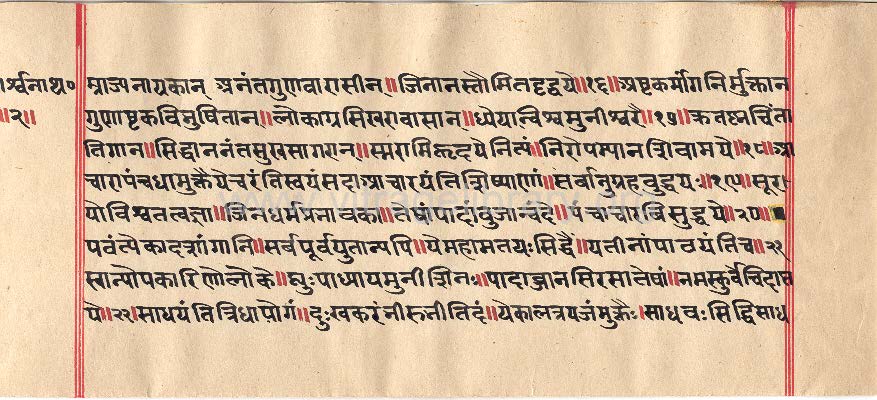 ार्श्वनाथ० म्राज्यनायकान् अनंतगुणवारासीन्॥जिनानस्तौमितद्दृद्वये॥१६॥अष्टकर्मांगनिर्मुक्तान
॥२॥ गुणाष्टकविभुषितान्॥लोकाग्रसिखरावासान्॥ध्येयान्विश्वमुनीश्वरै॥१७॥
तिगान॥सिद्धाननंतसुखसागरान्॥स्मरामिहृदयेनित्यं॥निरोपम्यानशिवामये॥१८॥आ
चारापंचधामुक्तैयेचरंतिस्वयंसदा॥आचारयंतिशिष्याणां॥सर्वानुग्रहबुद्धयः॥१९॥सूर
योविश्वतत्वज्ञा॥जिनधर्मप्रभावका॥तेषांपादांबुजान्वंदे॥पंचाचारविसुद्धये॥२०॥
पवंत्येकादशांगानि॥सर्वपूर्वयुतान्यपि॥येमहामतयःसिद्धै॥यतीनांपाठयंतिच॥२१
स्वान्योपकारिणोलोके॥पादाब्जानसिरसातेषां॥नमस्कुर्वेचिदाप्त
ये॥२२॥साधयंतित्रिधायोगं॥दुःखकरंनीरूनीतिदं॥येकालत्रयजंमुक्तैः॥साधवःसिद्धिसाध
www.vitragelibrary.org